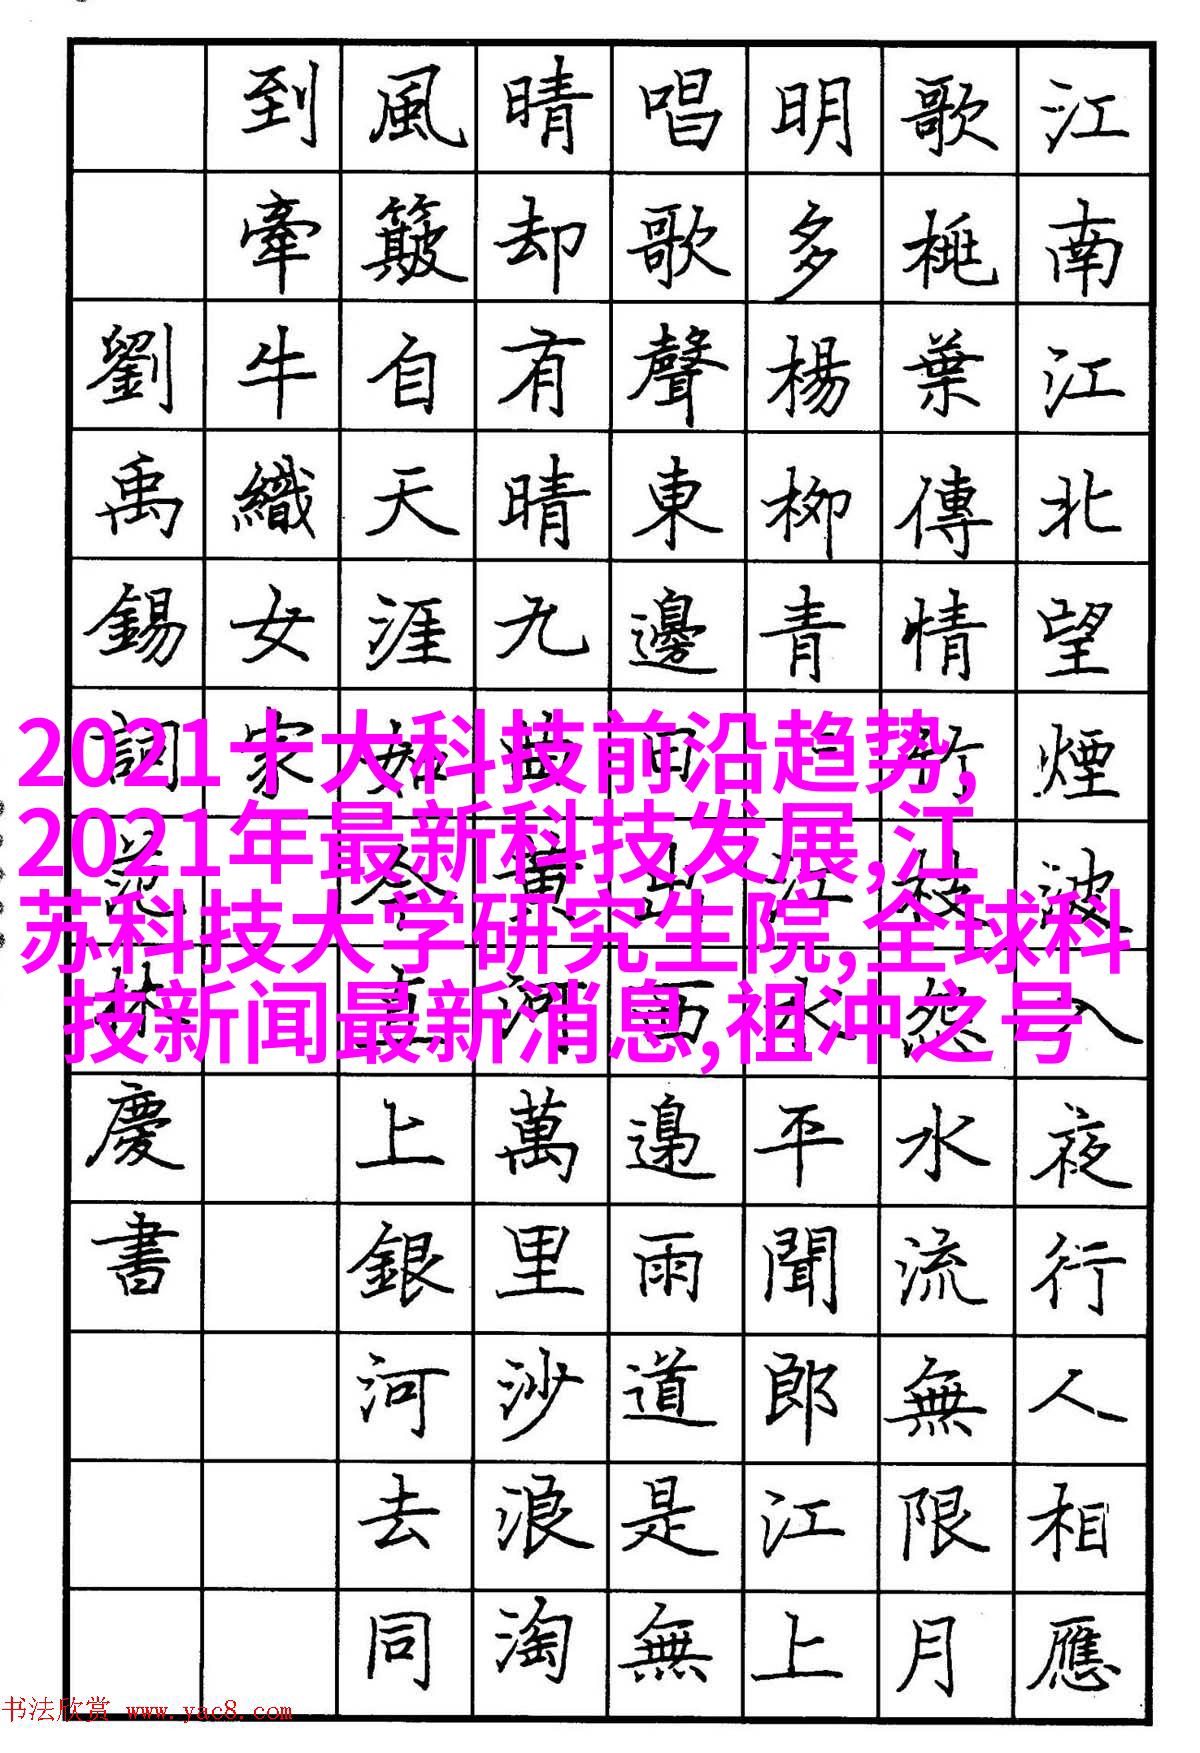 江南江北望煙波入夜行人相應
歌桃葉傳情竹枝怨水流無限月
明多楊柳青江水平聞郎江上
唱歌聲東邊日出西邊雨道是無
晴却有晴九曲黄河萬里沙浪淘
風簸自天涯如今直上銀河去同
到牽牛織女家
劉禹錫詞范林慶書
2021十大科技前沿趋势,
2021年最新科技发展,江
苏科技大学研究生院,全球科
技新闻最新消息,祖冲之号
书法欣赏 www.yac8.com